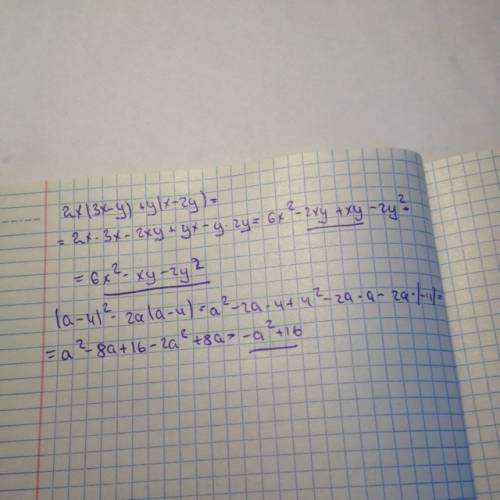 2x(3x-y)+y(x-2y)=
=2x·3x-2xy+yx-y·2y=6x²-2xy+xy-2y²=
=6x²-xy-2y²
(a-4)²-2a(a-4)=a²-2a·4+4²-2a·a-2a·(-4)=
=a²-8a+16-2a²+8a=-a²+16